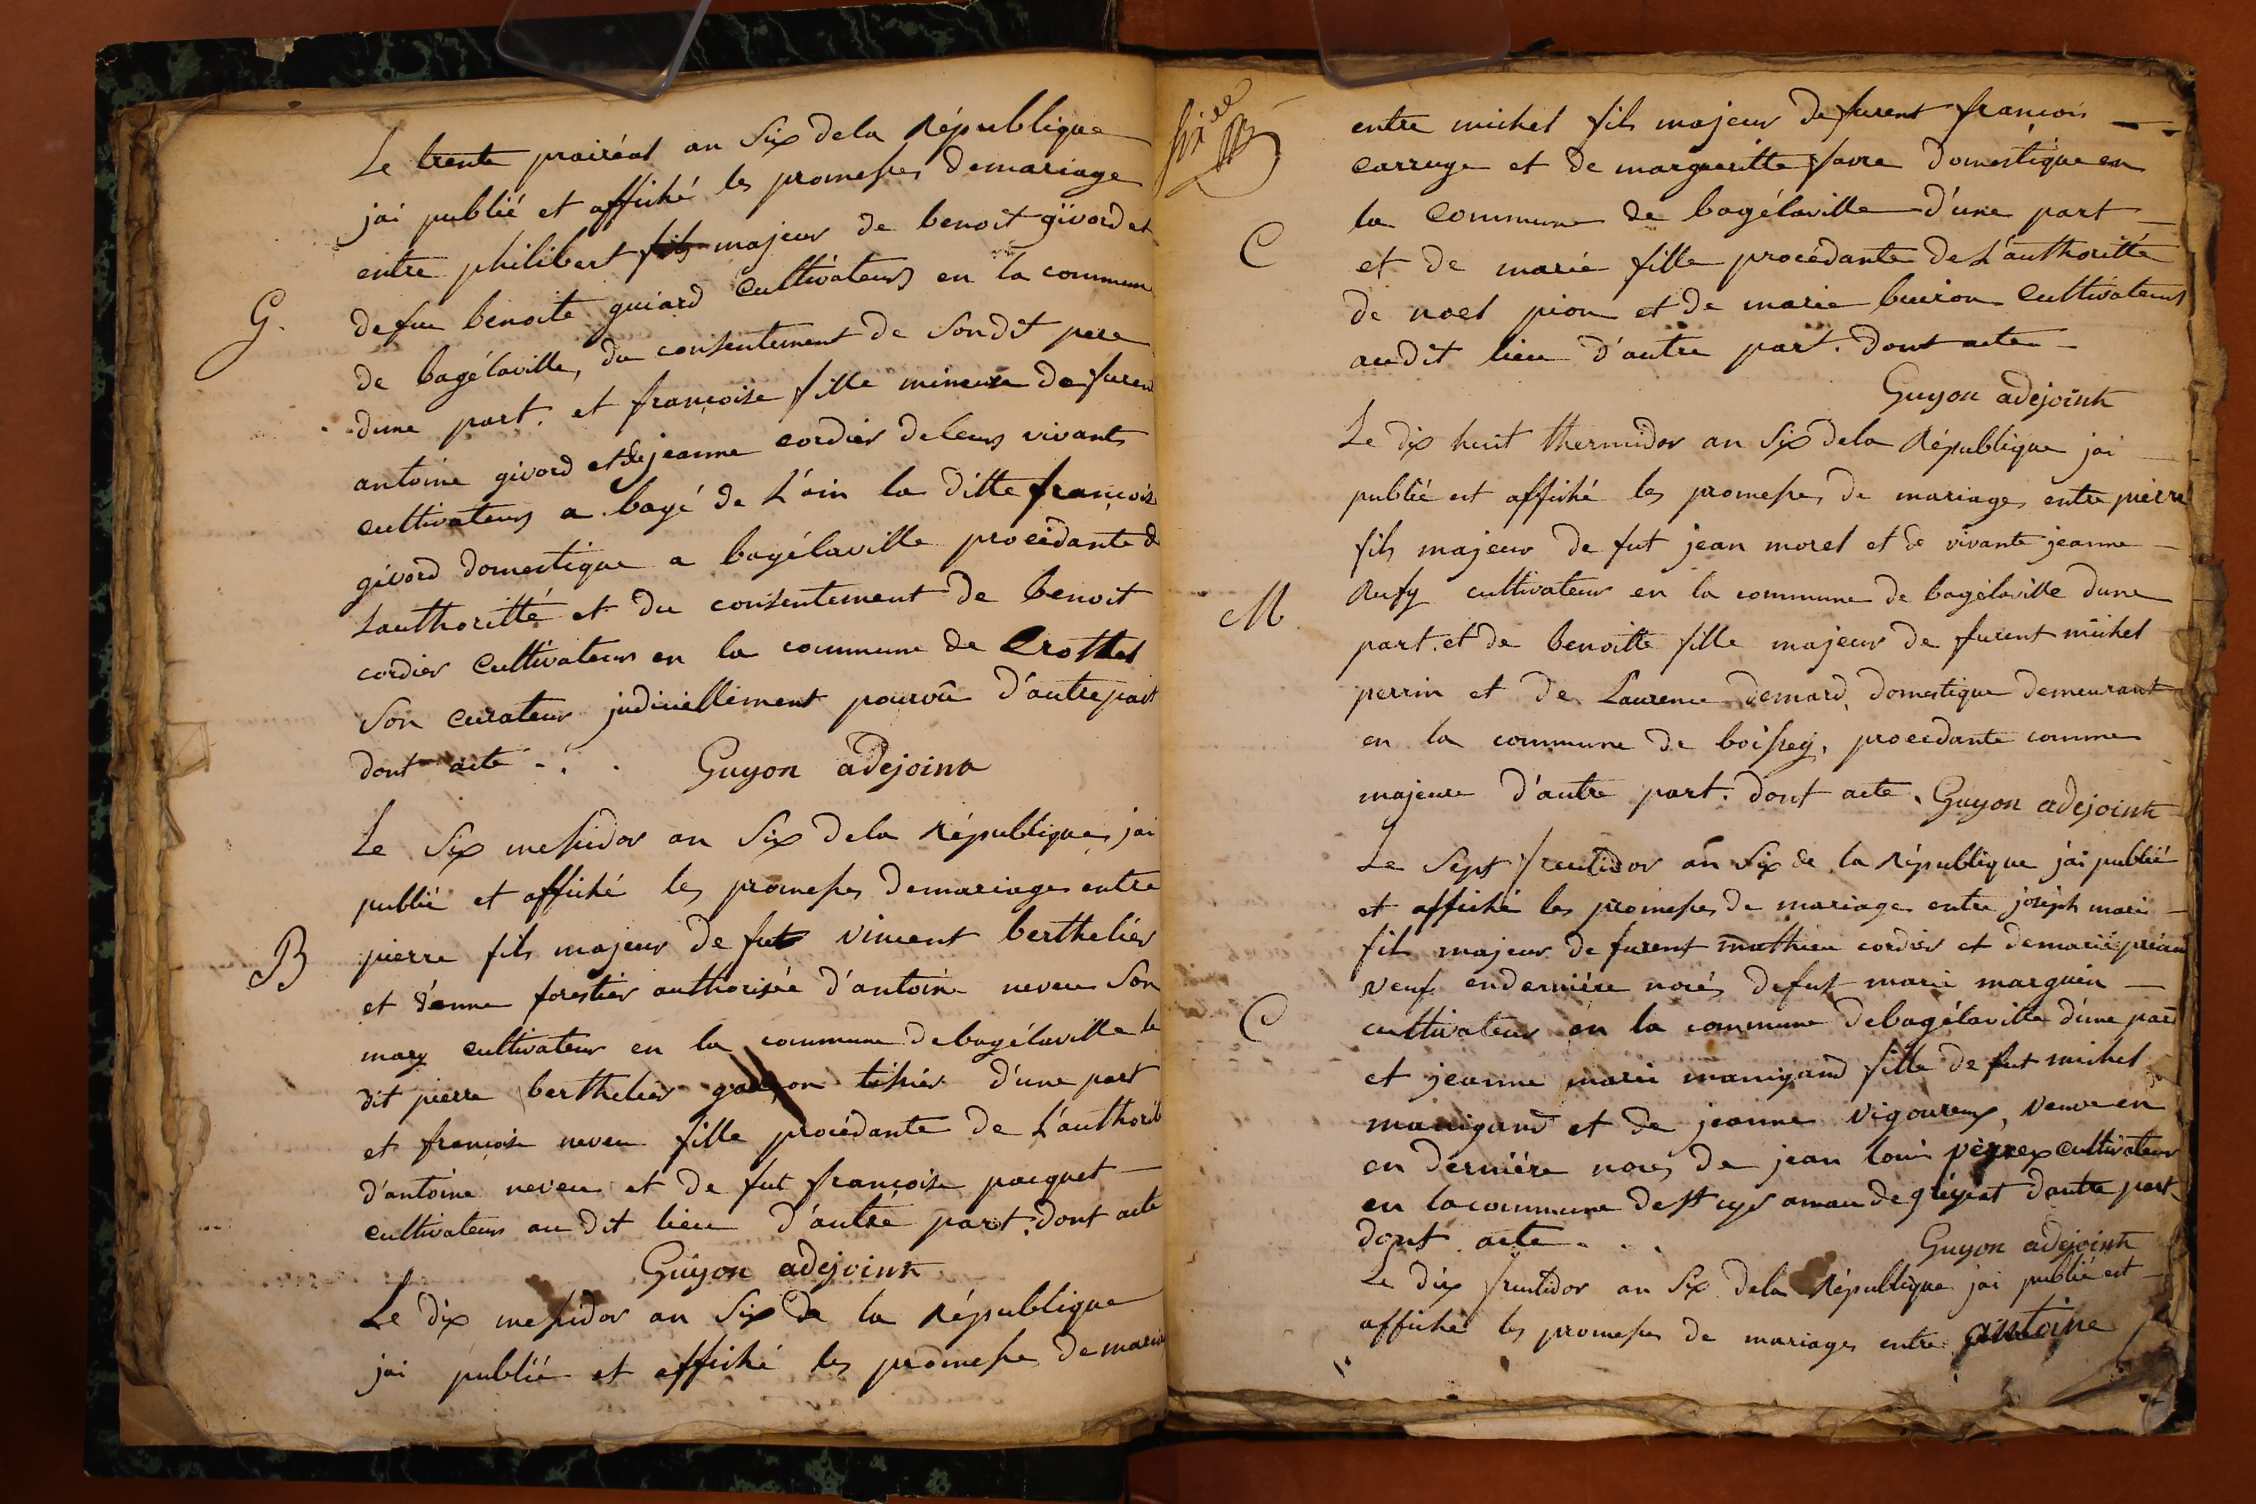 Le trente prairéal an Six dela République
jai publié et affiché les promesses demariage
entre philibert fils majeur de benoit givord et
defue benoite guiard Cultivateurs en la commune
G.
de bagélaville, du consentement de Sondit pere
dune part. et françoise fille mineure de furent
antoine givord et de jeanne cordier deleurs vivants
cultivateurs a bagé de L'ain la ditte françoise
givord domestique a bagélaville procédante de
Lauthoritté et du consentement de benoit
cordier Cultivateur en la commune de Crottet
Son Curateur judiciellement pourvû d'autrepart
dont acte . . . Guyon adejoint
Le Six messidor an Six dela République jai
publié et affiché les promesses demariages entre
B
pierre fils majeur de fut vincent berthelier
et d'enne forestier authorisée d'antoine neveu Son
mary cultivateur en la commune debagélaville le
dit pierre berthelier garçon tissier d'une part
et françoise neveu fille procédante de L'authorité
d'antoine neveu et de fut françoise pacquet
cultivateurs au dit lieu d'autre part. dont acte
Guyon adejoint
Le dix messidor an Six de la République
jai publié et affiché les promesses de mariage
entre michel fils majeur de furent françois
carruge et de margueritte favre domestique en
la Commune de bagélaville d'une part
C
et de marie fille procédante de L'authoritté
de noel pion et de marie buiron Cultivateurs
audit lieu d'autre part. dont acte
Guyon adejoint
Le dix huit thermidor an Six dela République jai
publié et affiché les promesses de mariages entre pierre
fils majeur de fut jean morel et de vivante jeanne
M
Rufy cultivateur en la commune de bagélaville dune
part. et de benoitte fille majeur de furent michel
perrin et de Laurence demard, domestique demeurant
en la commune de boissey, procedante comme
majeure d'autre part. dont acte. Guyon adejoint
Le Sept fructidor an Six de la République jai publié
et affiché les promesses de mariages entre joseph marie
fils majeur de furent mathieu cordier et demarie
veuf enderniére nocés defut marie marguin
C
cultivateur en la commune debagélaville d'une part
et jeanne marie manigand fille de fut michel
manigand et de jeanne vigoureux, veuve en
en derniére noces de jean louis perrex cultivateur
en lacommune de st cyr d'autre part
dont acte . . .
Guyon adejoint
Le dix fructidor an Six dela République jai publié et
affiché les promesses de mariages entre antoine